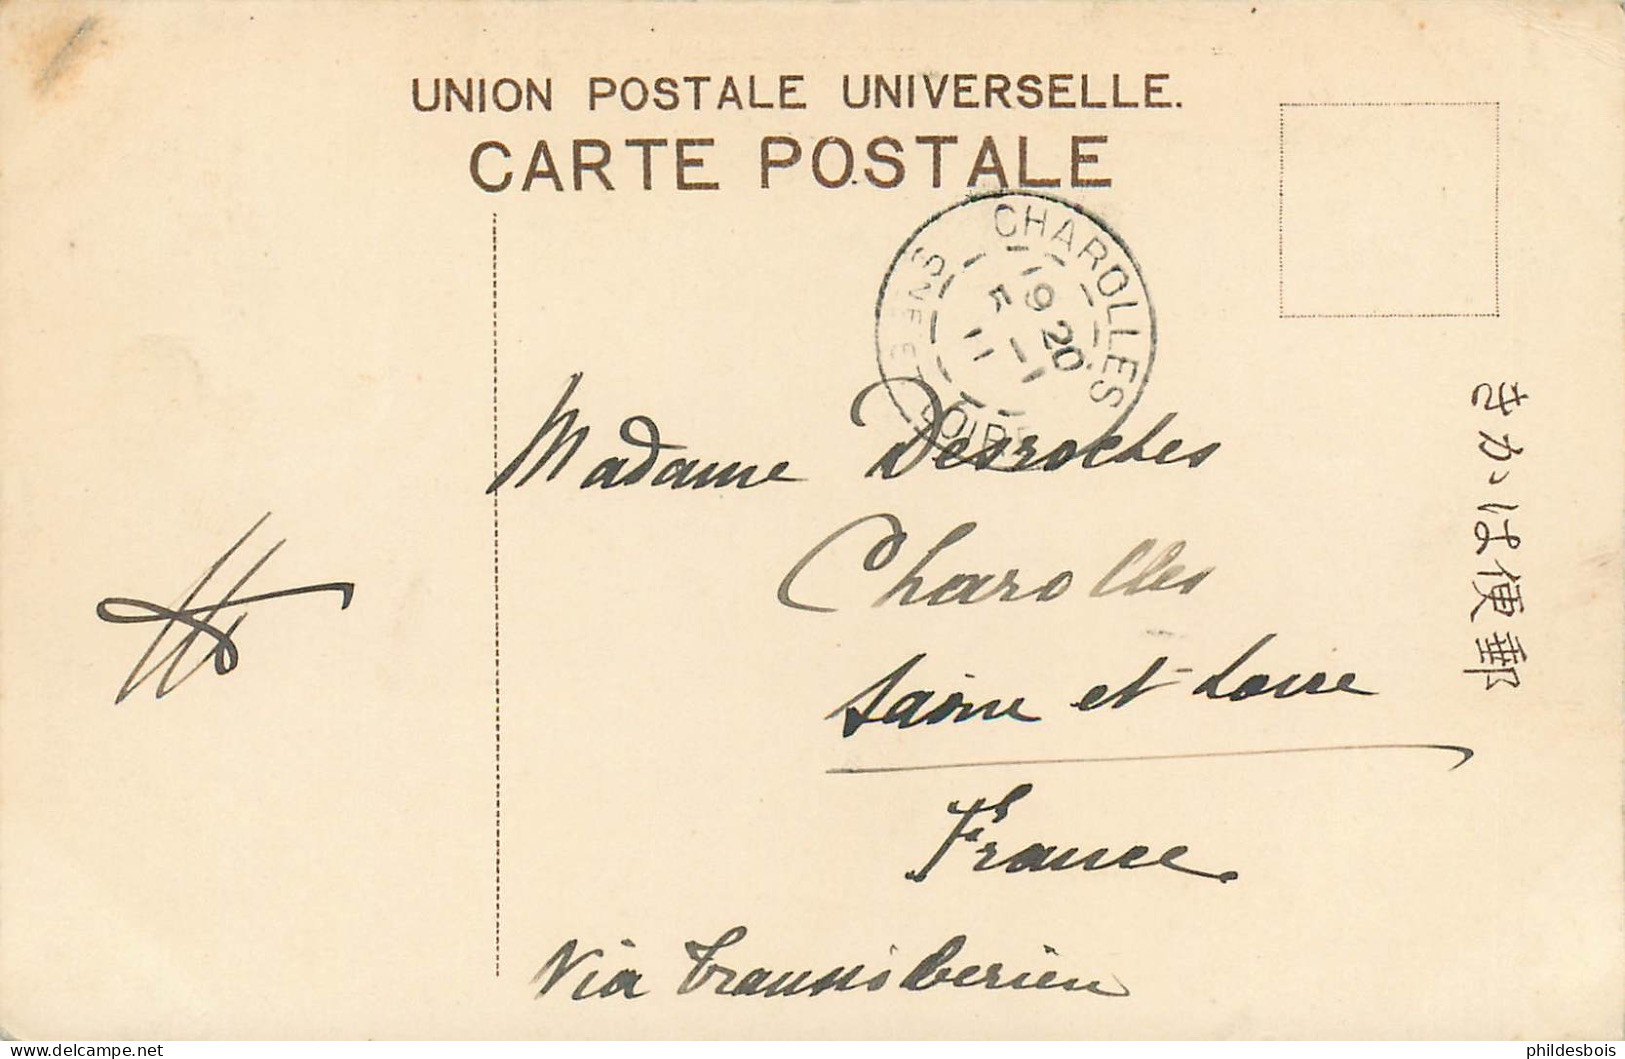 UNION POSTALE UNIVERSELLE.
CARTE POSTALE
CHAROLLES
9 20
5 - 1
11
SNE ET LOIRE
Madame Desroches
Charolles
Saône et Loire
France
Via Transsibérien
きかは便郵
philedesbois
© www.delcampe.net